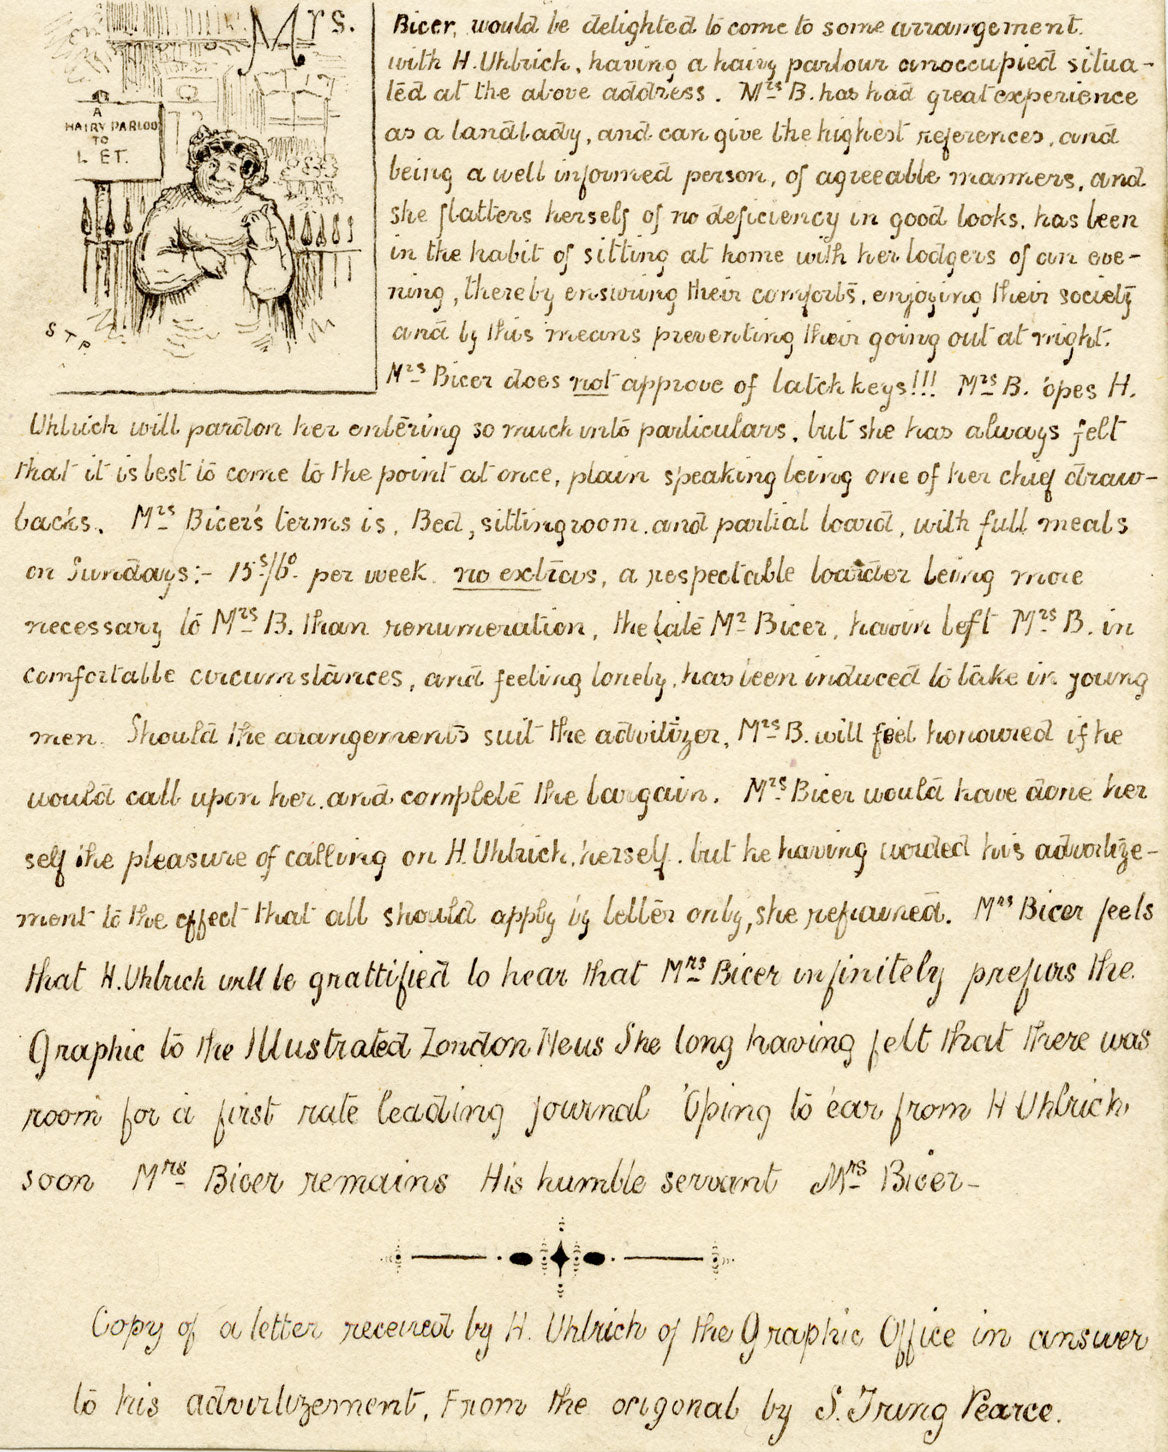 A
HAIRY PARLOU
TO
LET.
S T P.
Mrs.
Bicer, would be delighted to come to some arrangement.
with H. Uhlrich, having a hairy parlour anoccupied situa-
ted at the above address. Mrs B. has had great experience
as a landlady, and can give the highest references, and
being a well informed person, of agreeable manners, and
she flatters herself of no deficiency in good looks, has been
in the habit of sitting at home with her lodgers of an eve-
ning, thereby ensuring their comforts, enjoying their society
and by this means preventing their going out at night.
Mrs Bicer does not approve of latch keys!!! Mrs B. 'opes H.
Uhlrich will pardon her entering so much into particulars, but she has always felt
that it is best to come to the point at once, plain speaking being one of her chief draw-
backs. Mrs Bicer's terms is, Bed, sittingroom, and partial board, with full meals
on Sundays:- 15s/6d. per week. no extras, a respectable boarder being more
necessary to Mrs B. than renumeration, the late Mr Bicer, havin left Mrs B. in
comfortable circumstances, and feeling lonely, has been induced to take in young
men. Should the arangements suit the advitizer, Mrs B. will feel honoured if he
would call upon her, and complete the bargain. Mrs Bicer would have done her
self the pleasure of calling on H. Uhlrich, herself, but he having worded his advortize-
ment to the effect that all should apply by letter only, she refrained. Mrs Bicer feels
that H. Uhlrich will be grattified to hear that Mrs Bicer infinitely prefurs the
Graphic to the Illustrated London News She long having felt that there was
room for a first rate leading journal 'Oping to 'ear from H Uhlrich
soon Mrs Bicer remains His humble servant Mrs Bicer-
Copy of a letter received by H. Uhlrich of the Graphic Office in answer
to his advirtizement, From the origonal by S. Trung Pearce.